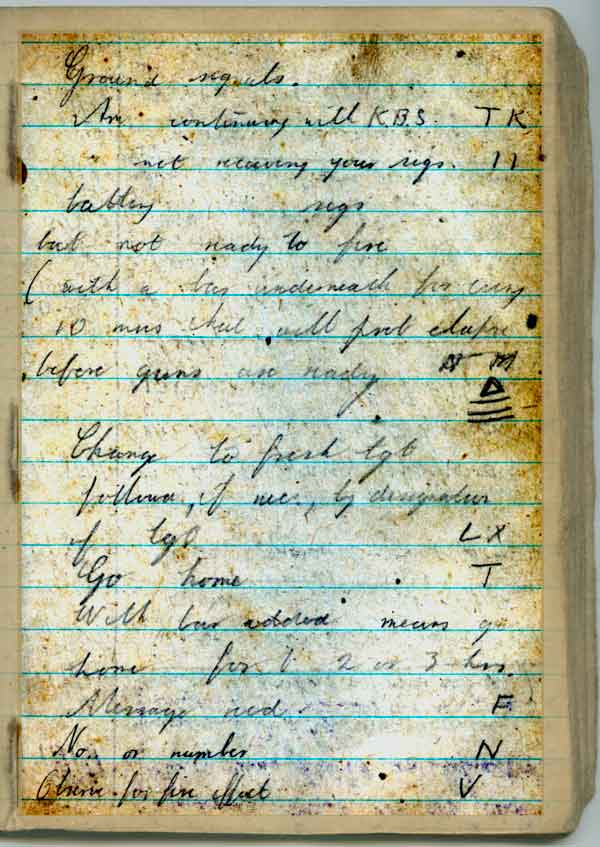 Ground signals.
Am continuing with K.B.S. T K
" not receiving your sigs. 11
battery sigs
but not ready to fire
( with a bar underneath for every
10 mins that will prob elapse
before guns are ready
Change to fresh tgt
followed, if nec, by designation
of tgt L X
Go home T
With bar added means go
home for 1 2 or 3 hrs.
Message recd F
No. or number N
Observe for fire effect V